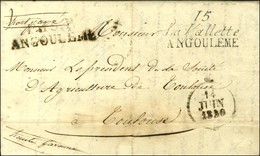 Port payé
ANGOULEME
Monsieur
15
La Vallette
ANGOULEME
Monsieur Le president de la Société
d'Agriculture de Toulouse
à Toulouse
JUIN
1830
haute garonne